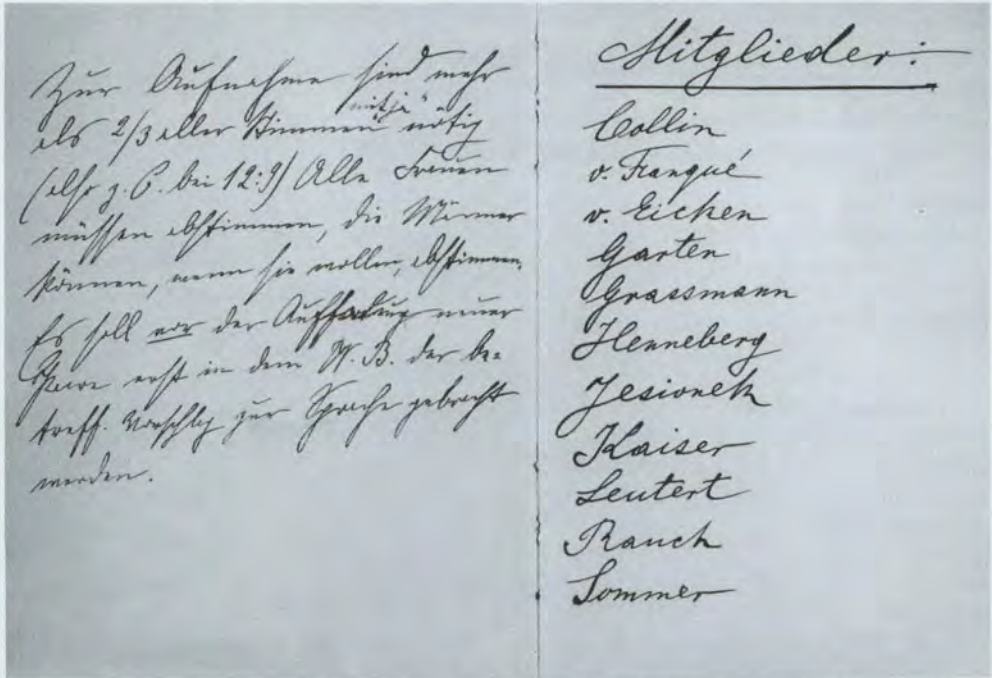 Zur Aufnahme sind mehr
als 2/3 aller Stimmen "mit ja" nötig
(also z. B. bei 12:9) Alle Frauen
müssen abstimmen, die Männer
können, wenn sie wollen, abstimmen.
Es soll vor der Aufforderung neuer
Paare erst in dem W. B. der be-
treff. Vorschlag zur Sprache gebracht
werden.
Mitglieder:
Collin
v. Franqué
v. Eicken
Garten
Grassmann
Henneberg
Jesionek
Kaiser
Leutert
Rauch
Sommer